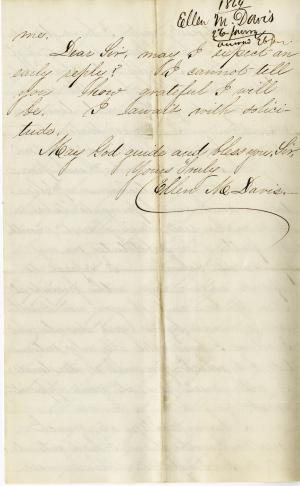 1864
Ellen M. Davis
me.
Dear Sir, may I expect an
early reply? I cannot tell
you how grateful I will
be. I await with solici-
tude.
May God guide and bless you, Sir,
Yours truly
Ellen M Davis.